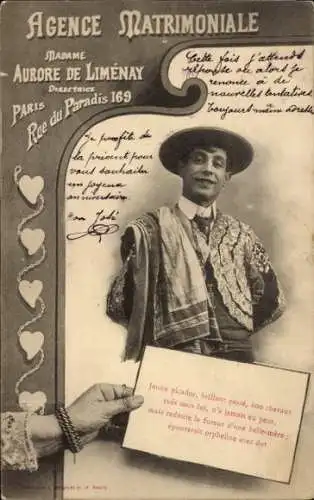 AGENCE MATRIMONIALE
MADAME
AURORE DE LIMÉNAY
DIRECTRICE
PARIS
Rue du Paradis 169
Cette fois j'attends
réponse ou alors je
renonce à de
nouvelles tentatives
Toujours même adresse
Je profite de
la présent pour
vous souhaiter
un joyeux
anniversaire
José
Jeune picador, brillant passé, bon chevaux
tués sous lui, n'a jamais eu peur,
mais redoute la fureur d'une belle-mère;
épouserait orpheline avec dot